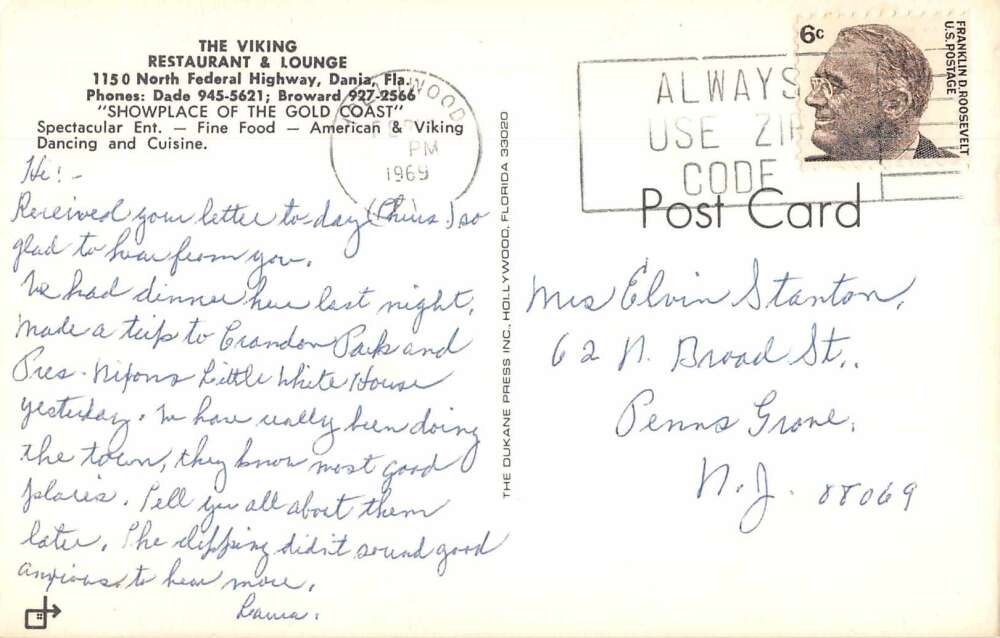 THE VIKING
RESTAURANT & LOUNGE
1150 North Federal Highway, Dania, Fla.
Phones: Dade 945-5621; Broward 927-2566
"SHOWPLACE OF THE GOLD COAST"
Spectacular Ent. — Fine Food — American & Viking
Dancing and Cuisine.
Hi! -
Received your letter to day (Thurs.) so
glad to hear from you.
We had dinner here last night.
Made a trip to Crandon Park and
Pres. Nixons Little White House
yesterday. We have really been doing
the town, they know most good
places. Tell you all about them
later. The clipping didn't sound good
anxious to hear more.
THE DUKANE PRESS INC., HOLLYWOOD, FLORIDA 33020
HOLLYWOOD
PM
1969
ALWAYS
USE ZIP
CODE
6c
FRANKLIN D. ROOSEVELT
U.S. POSTAGE
Post Card
Mrs Elvin Stanton,
62 N. Broad St..
Penns Grove,
N.J. 08069